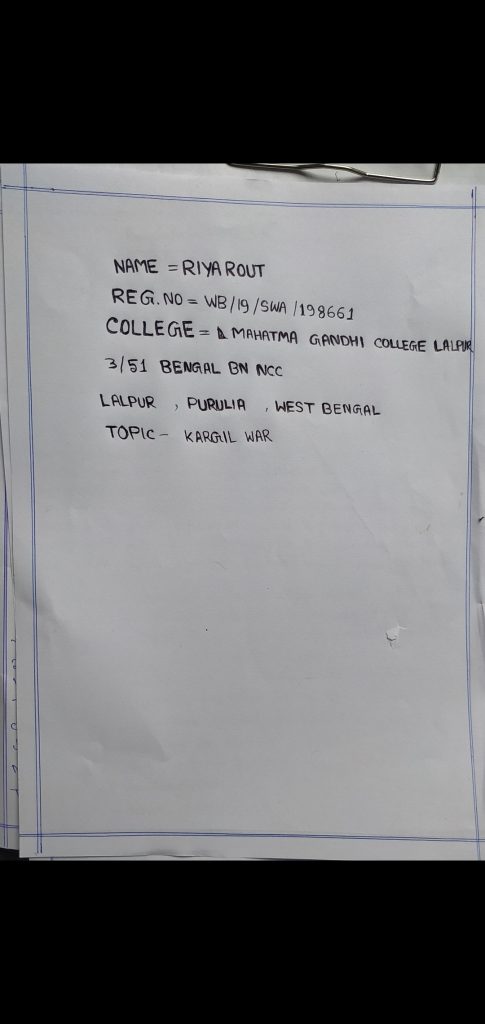 NAME = RIYA ROUT
REG. NO = WB/19/SWA/198661
COLLEGE = MAHATMA GANDHI COLLEGE LALPUR
3/51 BENGAL BN NCC
LALPUR , PURULIA , WEST BENGAL
TOPIC - KARGIL WAR